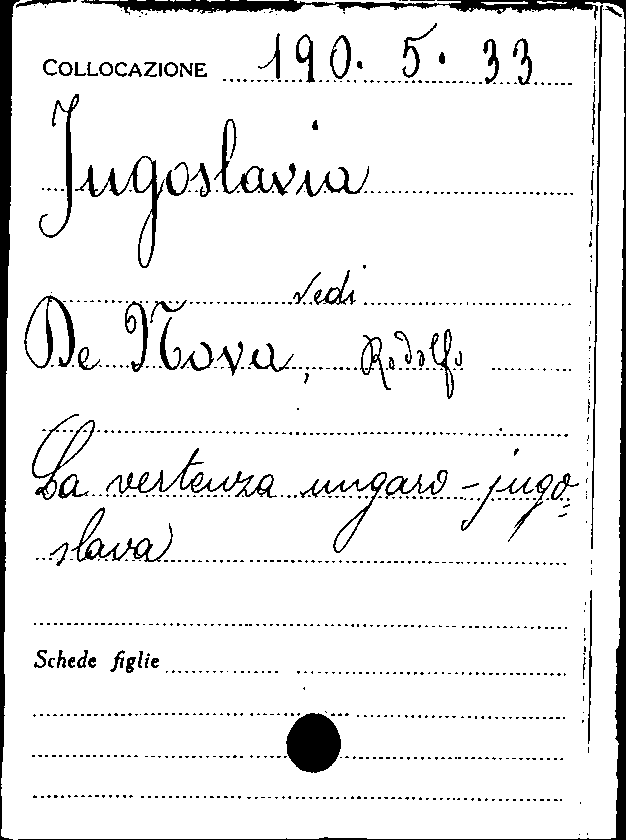 COLLOCAZIONE 190. 5. 33
Jugoslavia
vedi
De Nova, Rodolfo
La vertenza ungaro-jugo=
slava
Schede figlie